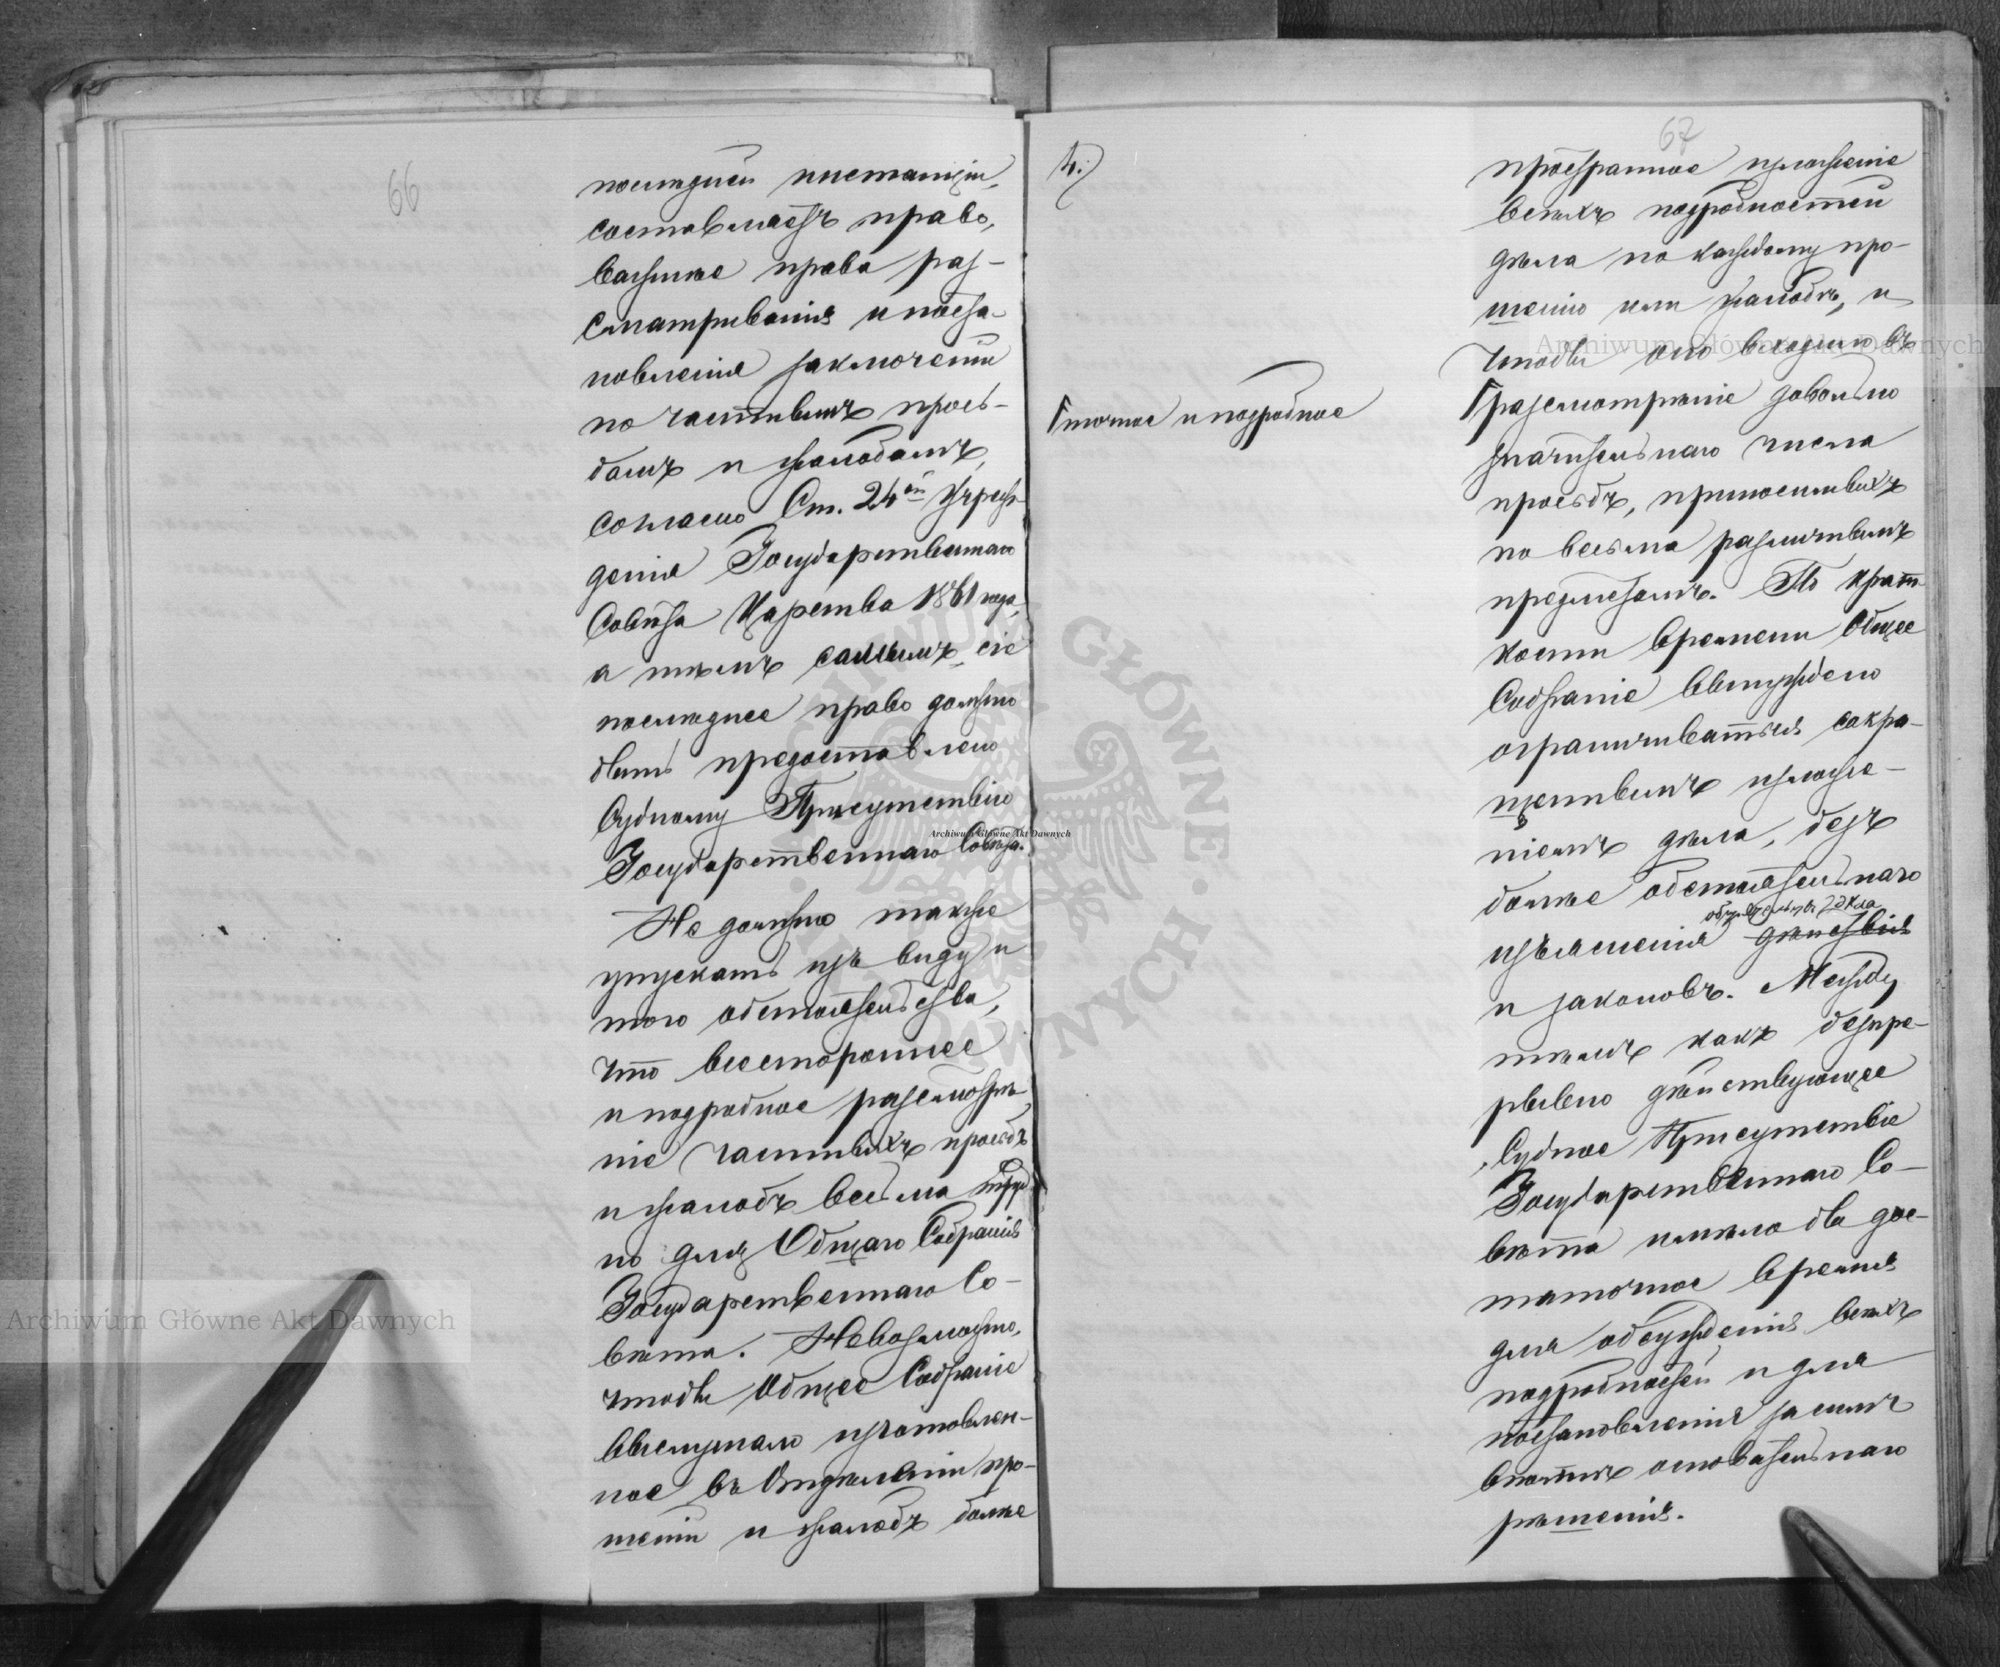 66
последней инстанціи,
составляетъ право,
важнѣе права раз-
сматриванія и поста-
новленія заключеній
по частнымъ прось-
бамъ и жалобамъ,
согласно Ст. 24ой Учреж-
денія Государственнаго
Совѣта Царства 1861 года,
а тѣмъ самымъ сіе
последнее право должно
быть предоставлено
Судному Присутствію
Государственнаго Совѣта.
Не должно также
упускать изъ виду и
того обстоятельства,
что всестороннее
и подробное разсмотрѣ-
ніе частныхъ просьбъ
и жалобъ весьма труд-
но для Общаго Собранія
Государственнаго Со-
вѣта. Невозможно,
чтобы Общее Собраніе
выслушало изготовлен-
ное въ Отдѣленіи про-
шеній и жалобъ болѣе
67
4.)
пространное изложеніе
всѣхъ подробностей
дѣла по каждому про-
шенію или жалобѣ, и
чтобы оно входило въ
точное и подробное
разсмотрѣніе довольно
значительнаго числа
просьбъ, приносимыхъ
по весьма различнымъ
предметамъ. По крат-
кости времени Общее
Собраніе вынуждено
ограничиваться сокра-
щеннымъ изложе-
ніемъ дѣла, безъ
болѣе обстоятельнаго
изъясненія дѣйствія
и законовъ. Между
тѣмъ какъ безпре-
рывно дѣйствующее
Судное Присутствіе
Государственнаго Со-
вѣта имѣло бы дос-
таточное время
для обсужденія всѣхъ
подробностей и для
постановленія за симъ
вполнѣ основательнаго
рѣшенія.
Archiwum Główne Akt Dawnych
Archiwum Główne Akt Dawnych
Archiwum Główne Akt Dawnych